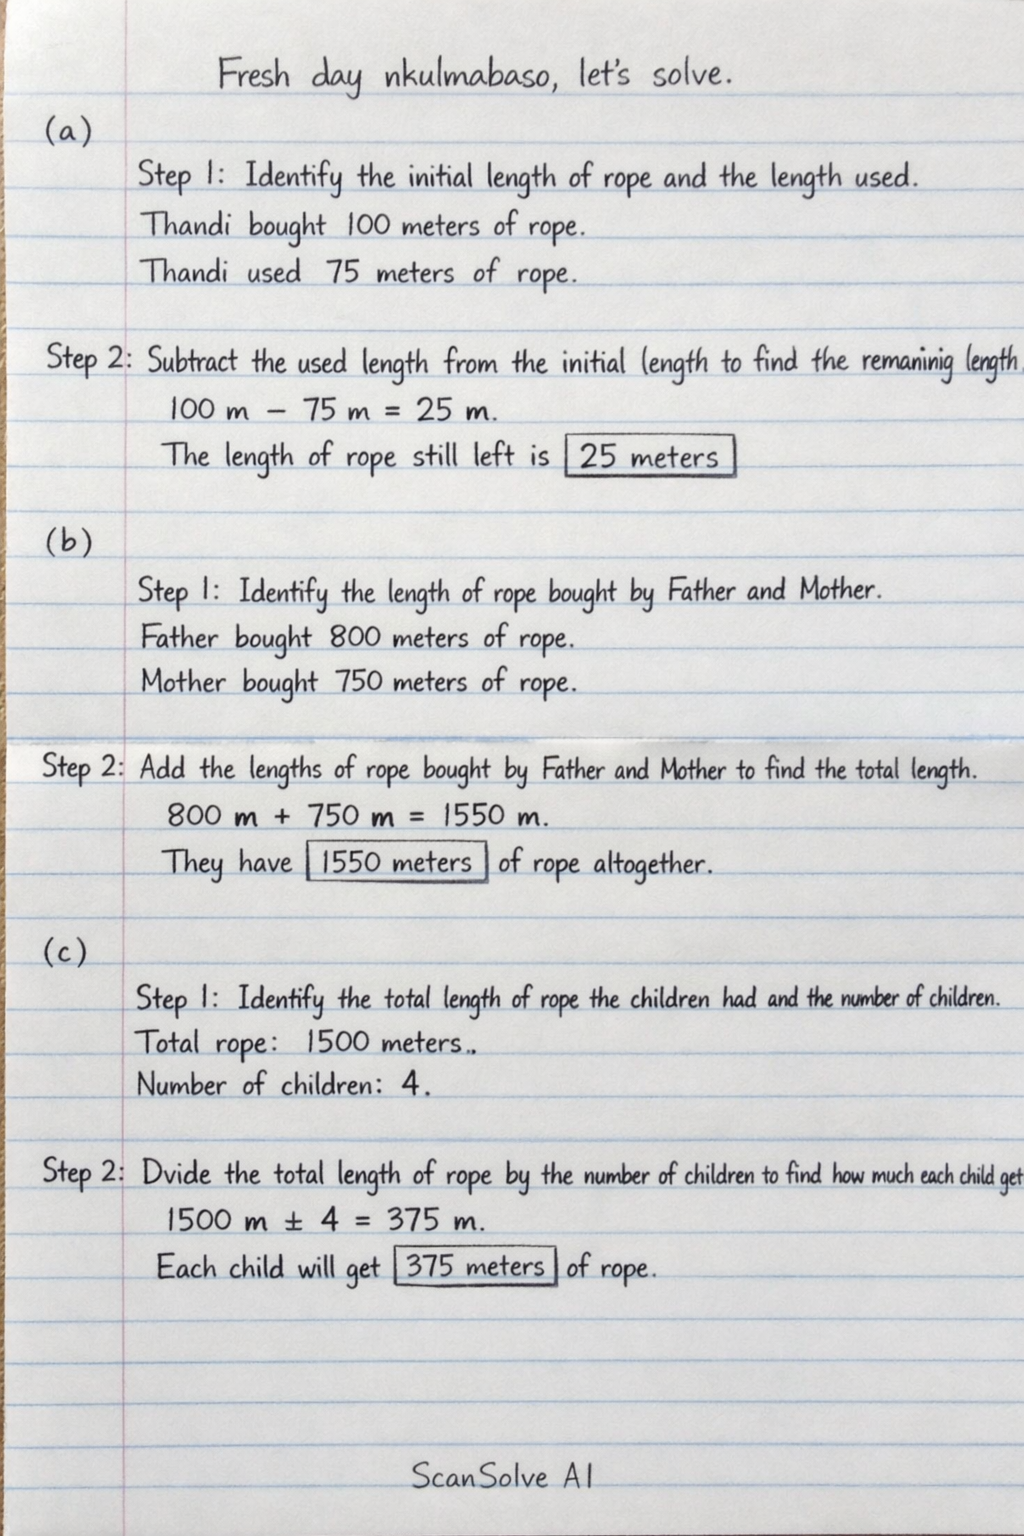 Fresh day nkulmabaso, let's solve.
(a)
Step 1: Identify the initial length of rope and the length used.
Thandi bought 100 meters of rope.
Thandi used 75 meters of rope.
Step 2: Subtract the used length from the initial length to find the remaninig length.
100 m – 75 m = 25 m.
The length of rope still left is 25 meters
(b)
Step 1: Identify the length of rope bought by Father and Mother.
Father bought 800 meters of rope.
Mother bought 750 meters of rope.
Step 2: Add the lengths of rope bought by Father and Mother to find the total length.
800 m + 750 m = 1550 m.
They have 1550 meters of rope altogether.
(c)
Step 1: Identify the total length of rope the children had and the number of children.
Total rope: 1500 meters..
Number of children: 4.
Step 2: Dvide the total length of rope by the number of children to find how much each child get
1500 m ± 4 = 375 m.
Each child will get 375 meters of rope.
ScanSolve AI